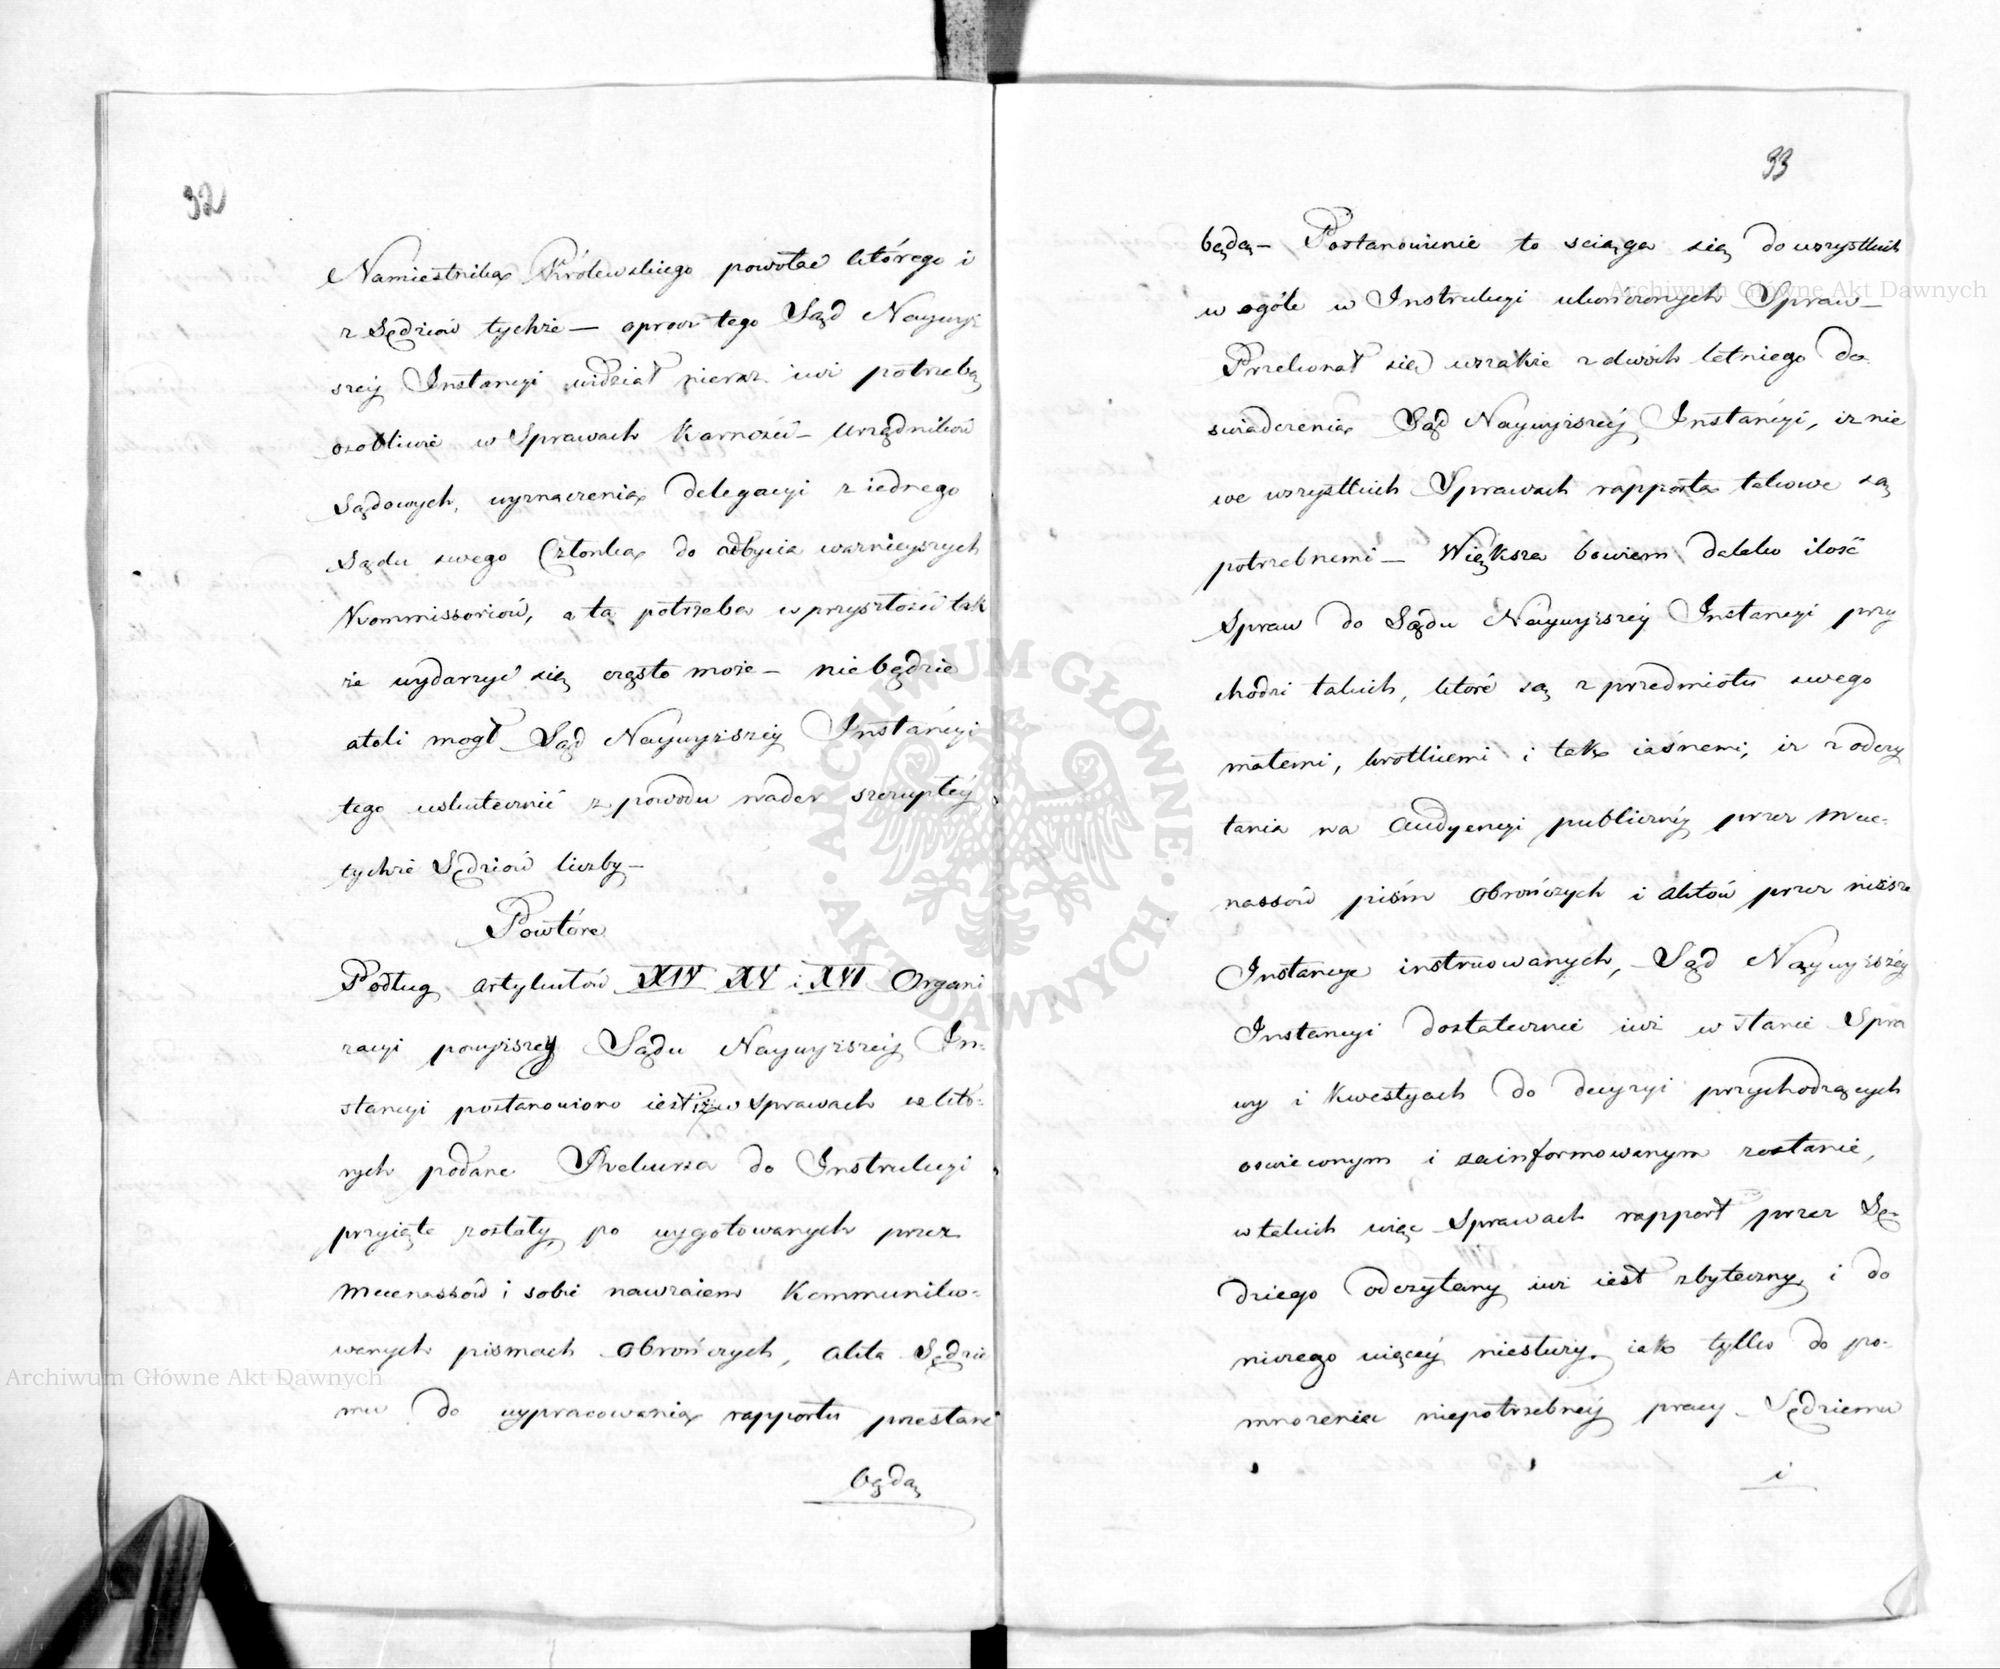 32
Namiestnika Królewskiego powołać którego i
z Sędziów tychże — oprócz tego Sąd Naywyż
széy Instancyi widział nieraz iuż potrzebę
osobliwie w Sprawach Karności Urzędników
Sądowych, wyznaczenia delegacyi z iednego
Sądu swego Członka do odbycia ważnieyszych
Kommissoriów, a ta potrzeba w przyszłości tak
że wydarzyć się często może — nie będzie
atoli mogł Sąd Naywyższéy Instancyi
tego uskutecznić z powodu nader szczupłéy
tychże Sędziów liczby —
Powtóre
Podług artykułów XIV XV i XVI Organi
zacyi powyższey Sądu Naywyższéy In-
stancyi postanowiono iest iż w Sprawach w któ-
rych podane Rekursa do Instrukcyi
przyięte zostały, po wygotowanych przez
Mecenassów i sobie nawzaiem Kommuniko-
wanych pismach obrończych, akta Sędzie
mu do wypracowania rapportu przesłane
będą
33
będą — Postanowienie to sciąga się do wszystkich
w ogóle w Instrukcyi ukończonych Spraw —
Przekonał się wszakże z dwóch letniego do
swiadczenia Sąd Naywyższéy Instancyi, iż nie
we wszystkich Sprawach rapporta takowe są
potrzebnemi — Większa bowiem daleko ilość
Spraw do Sądu Naywyższéy Instancyi przy
chodzi takich, które są z przedmiotu swego
małemi, krotkiemi i tak iasnemi, iż z odczy
tania na Audyencyi publiczney przez Mece-
nassów pism obrończych i aktów przez niższe
Instancye instruowanych, Sąd Naywyższéy
Instancyi dostatecznie iuż w stanie Spra
wy i Kwestyach do decyzyi przychodzących
oswieconym i zainformowanym zostanie,
w takich więc Sprawach rapport przez Sę-
dziego odczytany iuż iest zbyteczny i do
niczego więcéy niesłuży, iak tylko do po-
mnożenia niepotrzebnéy pracy Sędziemu
i
Archiwum Główne Akt Dawnych
Archiwum Główne Akt Dawnych
ARCHIWUM GŁÓWNE · AKT DAWNYCH ·